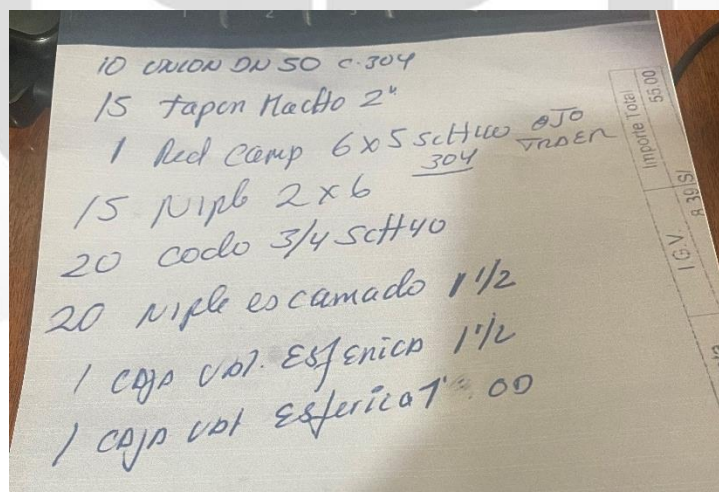 10 UNION DN 50 C-304
15 tapon Macho 2"
1 Red Camp 6x5 SCH40 OJO TRAER
304
15 Niple 2x6
20 codo 3/4 SCH40
20 Niple escamado 1 1/2
1 CAJA Val. Esferica 1 1/2
1 CAJA Val Esferica 1" OD
Importe Total 55.00
I.G.V. 8.39 S/